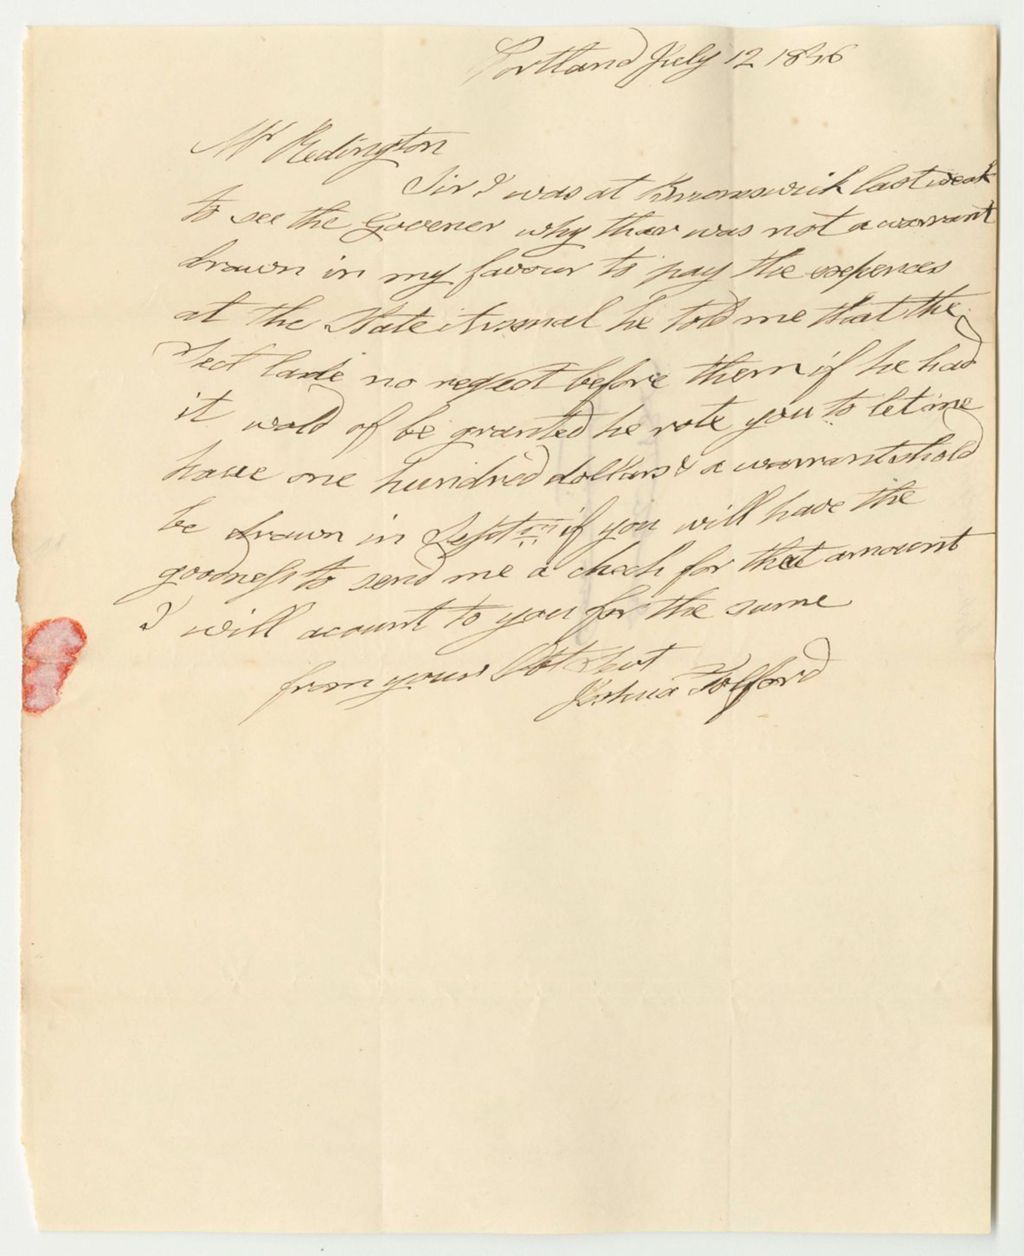 Portland July 12 1836
Mr Redington
Sir I was at Brunswick last week
to see the Govener why thar was not a warrant
drawn in my favour to pay the expences
at the State
he told me that the
Sect laide no reqest before them if he had
it wold of be granted he rote you to let me
have one hundred dollars & a warrant shold
be drawn in Sept if you will have the
goodness to send me a check for that amount
I will acount to you for the same
from yours
Joshua Tolford